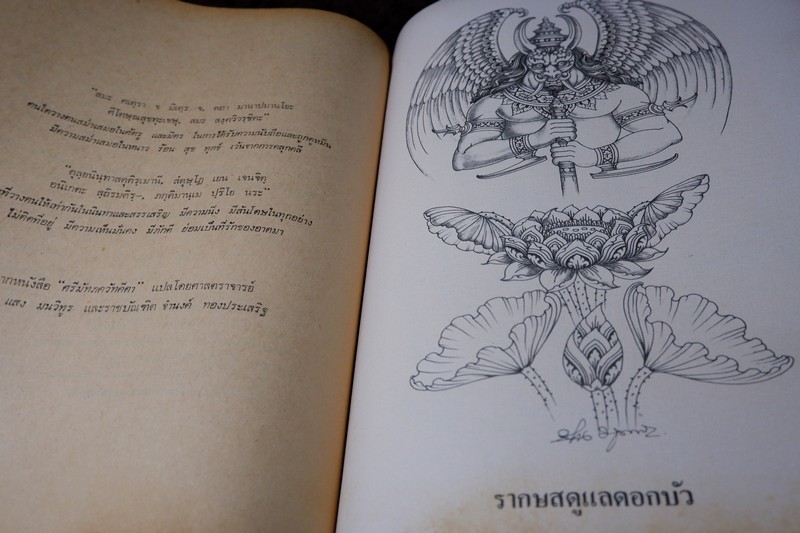 "สมะ ศเตฺรา จ มิเตฺร จ, ตถา มานาปมานโยะ
ศีโตษฺณสุขทุะเขษุ, สมะ สงฺควิวรฺชิตะ"
ตนไว้วางตนสม่ำเสมอในศัตรู และมิตร ในการได้รับความนับถือและถูกดูหมิ่น
มีความสม่ำเสมอในหนาว ร้อน สุข ทุกข์ เว้นจากการคลุกคลี
"ตุลฺยนินฺทาสฺตุติรฺเมานี, สํตุษฺโฏ เยน เกนจิตฺ
อนิเกตะ สฺถิรมติรฺ-, ภกฺติมานฺเม ปฺริโย นระ"
ที่วางตนให้เท่ากันในนินทาและสรรเสริญ มีความนิ่ง มีสันโดษในทุกอย่าง
ไม่ติดที่อยู่ มีความเห็นมั่นคง มีภักดี ย่อมเป็นที่รักของอาตมา
ากหนังสือ "ศรีมัทภควัทคีตา" แปลโดยศาสตราจารย์
แสง มนวิทูร และราชบัณฑิต จำนงค์ ทองประเสริฐ
รากษสดูแลดอกบัว